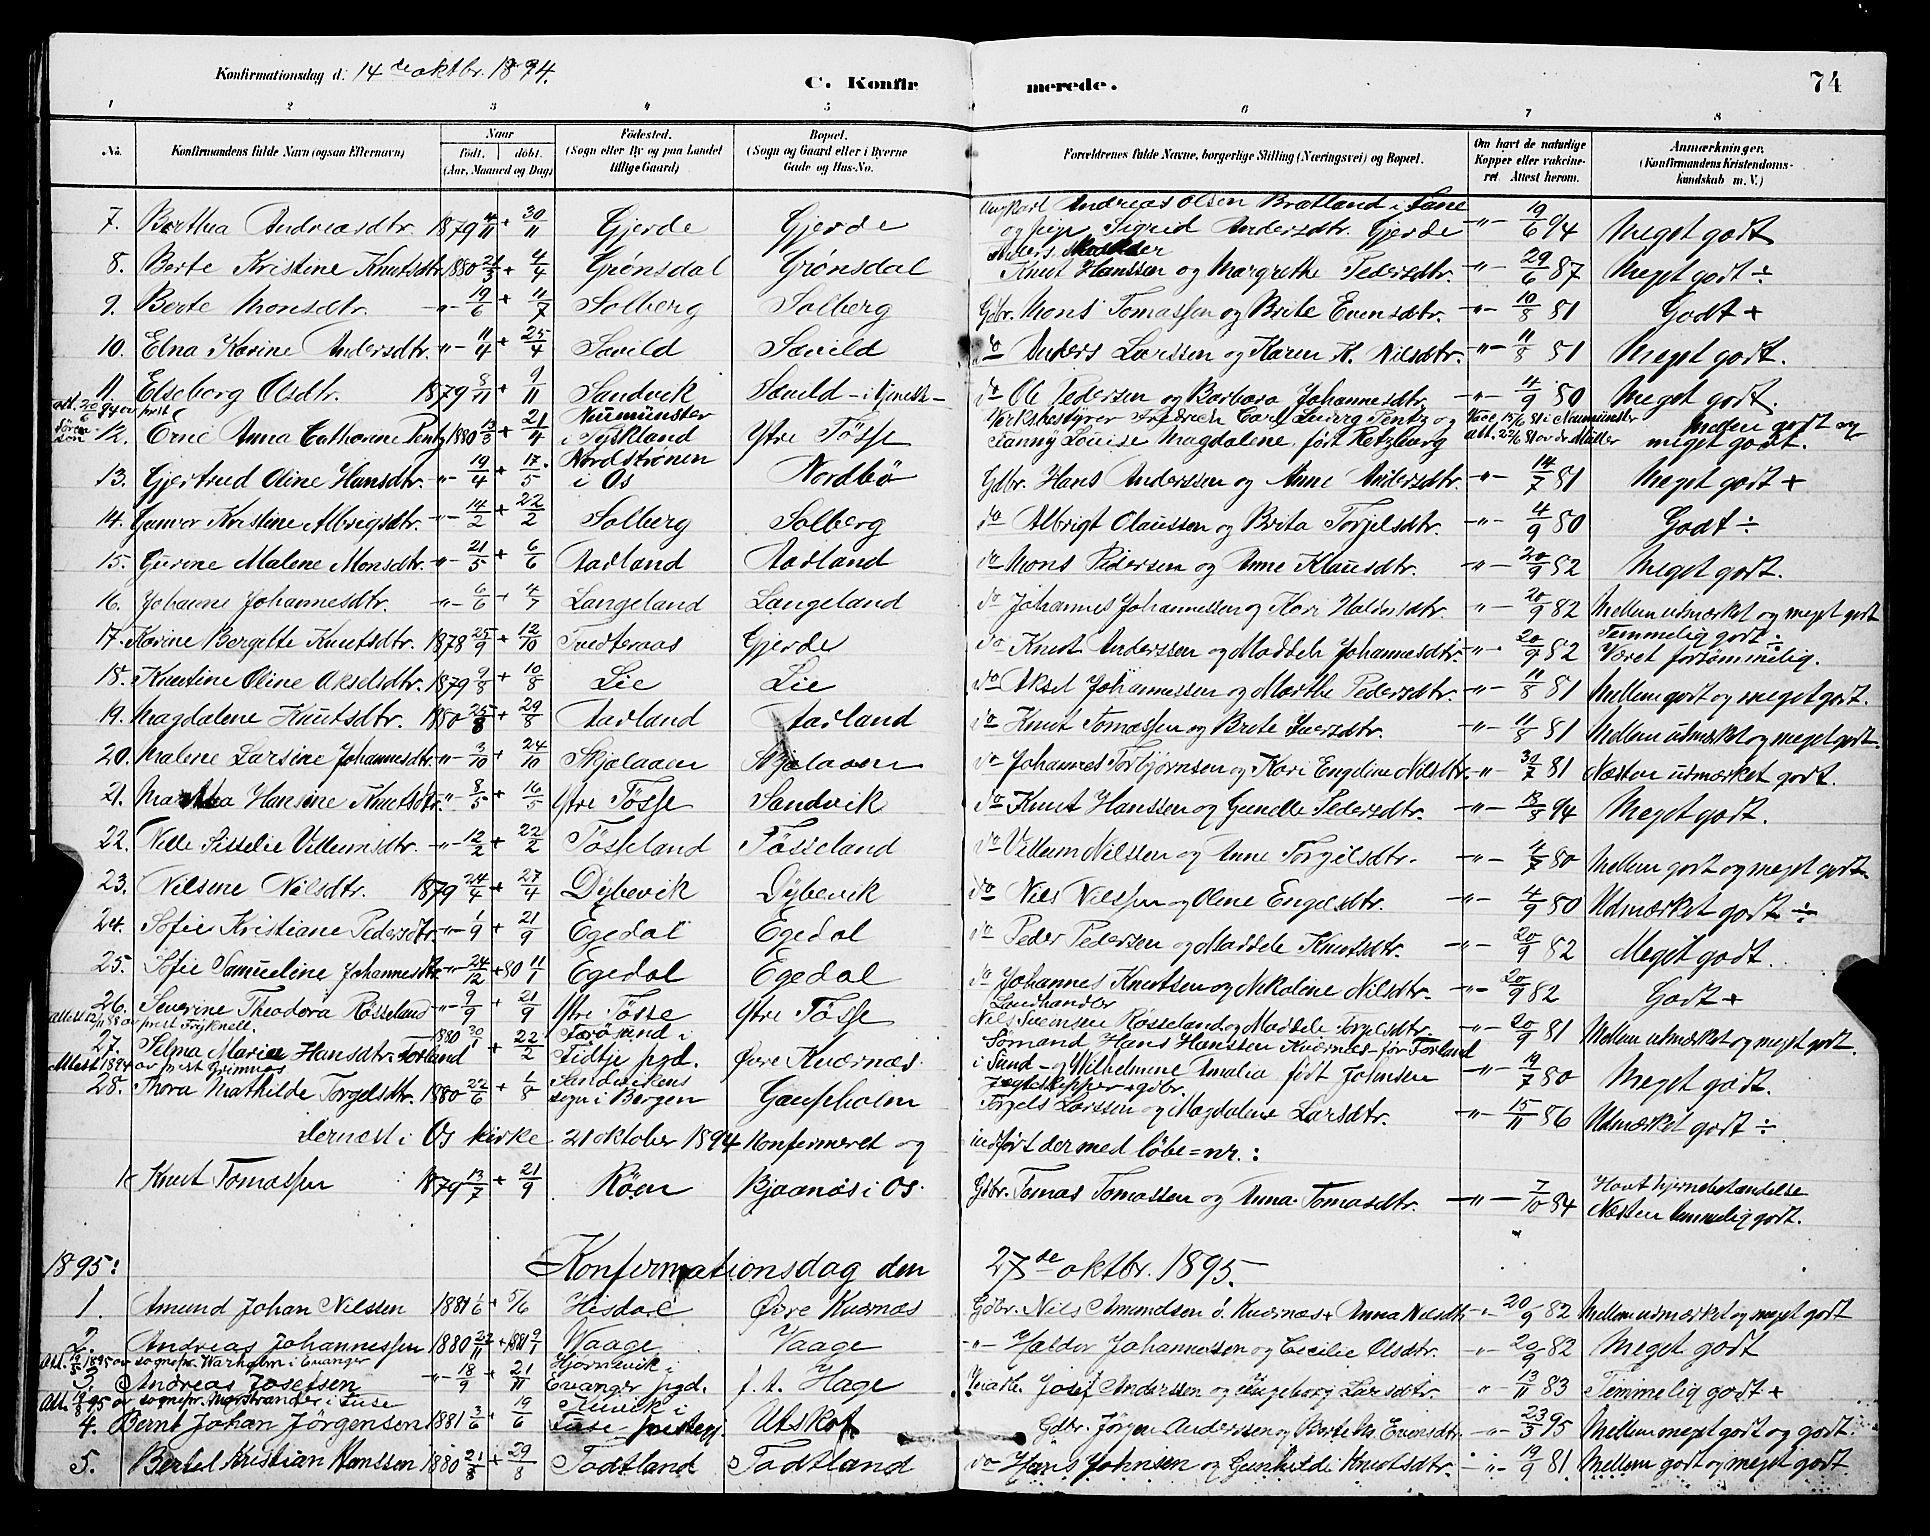 Konfirmationsdag d. 14de oktbr. 1894.
C. Konfirmerede.
74
1 2 3 4 5 6 7 8
No. Konfirmandens fulde Navn (ogsaa Efternavn) Naar født. døbt. (Aar, Maaned og Dag) Fødested. (Sogn eller By og paa Landet tillige Gaard) Bopæl. (Sogn og Gaard eller i Byerne Gade og Hus-No. Forældrenes fulde Navne, borgerlige Stilling (Næringsvei) og Bopæl. Om havt de naturlige Kopper eller vakcineret. Attest herom. Anmærkninger. (Konfirmandens Kristendomskundskab m. V.)
7. Berthea Andreasdtr. 1879 4/11 + 30/11 Gjerde Gjerde Ungkarl Andreas Olsen Bratland i Fane og pige Sigrid Andersdtr. Gjerde -"- 19/6 94 Meget godt
8. Berte Kristine Knutsdtr. 1880 21/3 + 4/4 Grønsdal Grønsdal Knut Hanssen og Margrethe Pedersdtr. -"- 29/6 87 Meget godt ÷
9. Berte Monsdtr. -"- 19/6 + 11/7 Solberg Solberg Gdbr. Mons Tomassen og Brite Evensdtr. -"- 10/8 81 Godt +
10. Elna Karine Andersdtr. -"- 11/4 + 25/4 Sævild Sævild do Anders Larssen og Karen K. Nilsdtr. -"- 11/8 81 Meget godt.
11. Elseberg Olsdtr. 1879 8/11 + 9/11 Sandvik Sævild do Ole Pedersen og Barbara Johannesdtr. -"- 4/9 80 Meget godt.
12. Erne Anna Catharine Pentz 1880 13/3 + 21/4 Neumünster i Tyskland Ytre Tøsse Verksbestyrer Fredrich Carl Ludvig Pentz og Fanny Louise Magdalene født Retzburg Vac. 15/6 81 i Neumünster att. 22/6 81 av dr. Müller mellem godt og meget godt.
13. Gjertrud Oline Hansdtr. -"- 19/4 + 17/5 Nordstrønen i Os Nordbø Gdbr. Hans Anderssen og Anne Andersdtr. -"- 14/7 81 Meget godt +
14. Gunvor Kristine Albrigsdtr. -"- 14/2 + 22/2 Solberg Solberg do Albrigt Claussen og Brita Torgilsdtr. -"- 4/9 80 Godt ÷
15. Gurine Malene Monsdtr. -"- 21/5 + 6/6 Aarland Aarland do Mons Pedersen og Anne Klausdtr. -"- 20/9 82 Meget godt.
16. Johanne Johannesdtr. -"- 6/6 + 4/7 Langeland Langeland do Johannes Johannessen og Kari Haldorsdtr. -"- 20/9 82 Mellem udmærket og meget godt
17. Karine Bergitte Knutsdtr. 1878 25/9 + 12/10 Tvedteraas Gjerde do Knut Anderssen og Maddeli Johannesdtr. -"- 20/9 82 Temmelig godt ÷ Været forsømmelig.
18. Knutine Oline Akselsdtr. 1879 9/8 + 10/8 Lie Lie do Aksel Johannessen og Marthe Pedersdtr. -"- 11/8 81 Mellem godt og meget godt.
19. Magdalene Knutsdtr. 1880 25/8 + 29/8 Aarland Aarland do Knut Tomassen og Brite Iversdtr. -"- 11/8 81 Mellem udmærket og meget godt.
20. Malene Larsine Johannesdtr. -"- 3/10 + 24/10 Skjelaaen Skjelaaen do Johannes Torbjørnsen og Kari Engeline Nilsdtr. -"- 30/7 81 Næsten udmærket godt.
21. Martha Hansine Knutsdtr. -"- 8/5 + 16/5 Ytre Tøsse Sandvik do Knut Hanssen og Gunelle Pedersdtr. -"- 18/8 94 Meget godt.
22. Nille Sisselie Villumsdtr. -"- 12/2 + 22/2 Tøsseland Tøsseland do Villum Nilssen og Anne Torgilsdtr. -"- 4/7 80 Mellem godt og meget godt.
23. Nilsine Nilsdtr. 1879 24/4 + 27/4 Dybevik Dybevik do Nils Nilssen og Oline Engelsdtr. -"- 4/9 80 Udmærket godt ÷
24. Sofie Kristiane Pedersdtr. -"- 1/9 + 21/9 Egedal Egedal do Peder Pedersen og Maddeli Knutsdtr. -"- 20/9 82 Meget godt.
25. Sofie Samueline Johannesdtr. -"- 24/12 + 80 11/1 Egedal Egedal do Johannes Knutsen og Nikoline Nilsdtr. -"- 20/9 82 Godt +
26. Severine Theodora Røsseland -"- 9/9 + 21/9 Ytre Tøsse Ytre Tøsse Landhandler Nils Svensen Røsseland og Maddele Torgilsdtr. -"- 20/9 81 Mellem udmærket og meget godt.
27. Selma Marie Hansdtr. Forland 1880 30/1 + 22/2 i Tidtje pgd. Øvre Kværnæs Sømand Hans Hanssen Kværnæs før Forland i Sund og Wilhelmine Amalia født Johnsen -"- 19/7 80 Meget godt.
Attest 1894 av prest Grimnæs
28. Thora Mathilde Torgelsdtr. 1880 22/6 + 1/8 Sandvikens sogn i Bergen Gaupholm Jegteskipper + gdbr. Torgils Larssen og Magdalene Larsdtr. -"- 15/11 86 Udmærket godt ÷
dernæst i Os kirke 21 oktober 1894 konfermeret og indført der med løbe=nr.:
1. Knut Tomassen 1879 13/7 + 21/9 Røen Bjaanæs i Os. Gdbr. Tomas Tomassen og Anna Tomasdtr. -"- 7/10 84 Havt hjernebetændelse Næsten temmelig godt.
1895: Konfirmationsdag den 27de oktbr. 1895.
1. Amund Johan Nilssen 1881 1/6 + 5/6 Hisdal Øvre Kværnæs Gdbr. Nils Amundsen ø. Kværnæs + Anna Nilsdtr. -"- 20/9 82 Mellem udmærket og meget godt
2. Andreas Johannessen 1880 22/11 + 1881 9/1 Vaage Vaage -"- Haldor Johannessen og Cecilie Olsdtr. -"- 20/9 82 Meget godt
Att. 19/5 1895 av sognepr. Warholm i Evanger
3. Andreas Josefsen -"- 18/9 + 21/11 Hjørnevik i Evanger pgd. f. t. Hage Josef Anderssen og Ingeborg Larsdtr. -"- 13/11 83 Temmelig godt +
Att. 19/8 95 av sognepr. Magstrander i Fuse
4. Bernt Johan Jørgensen 1881 3/6 + 19/6 i Fuse prestegj. Utskot Gdbr. Jørgen Anderssen og Berte Evensdtr. -"- 23/3 95 Mellem meget godt og godt.
5. Bertel Kristian Hanssen 1880 21/8 + 29/8 Todtland Todtland do Hans Johnsen og Gunhilde Knutsdtr. -"- 19/9 81 Mellem godt og meget godt